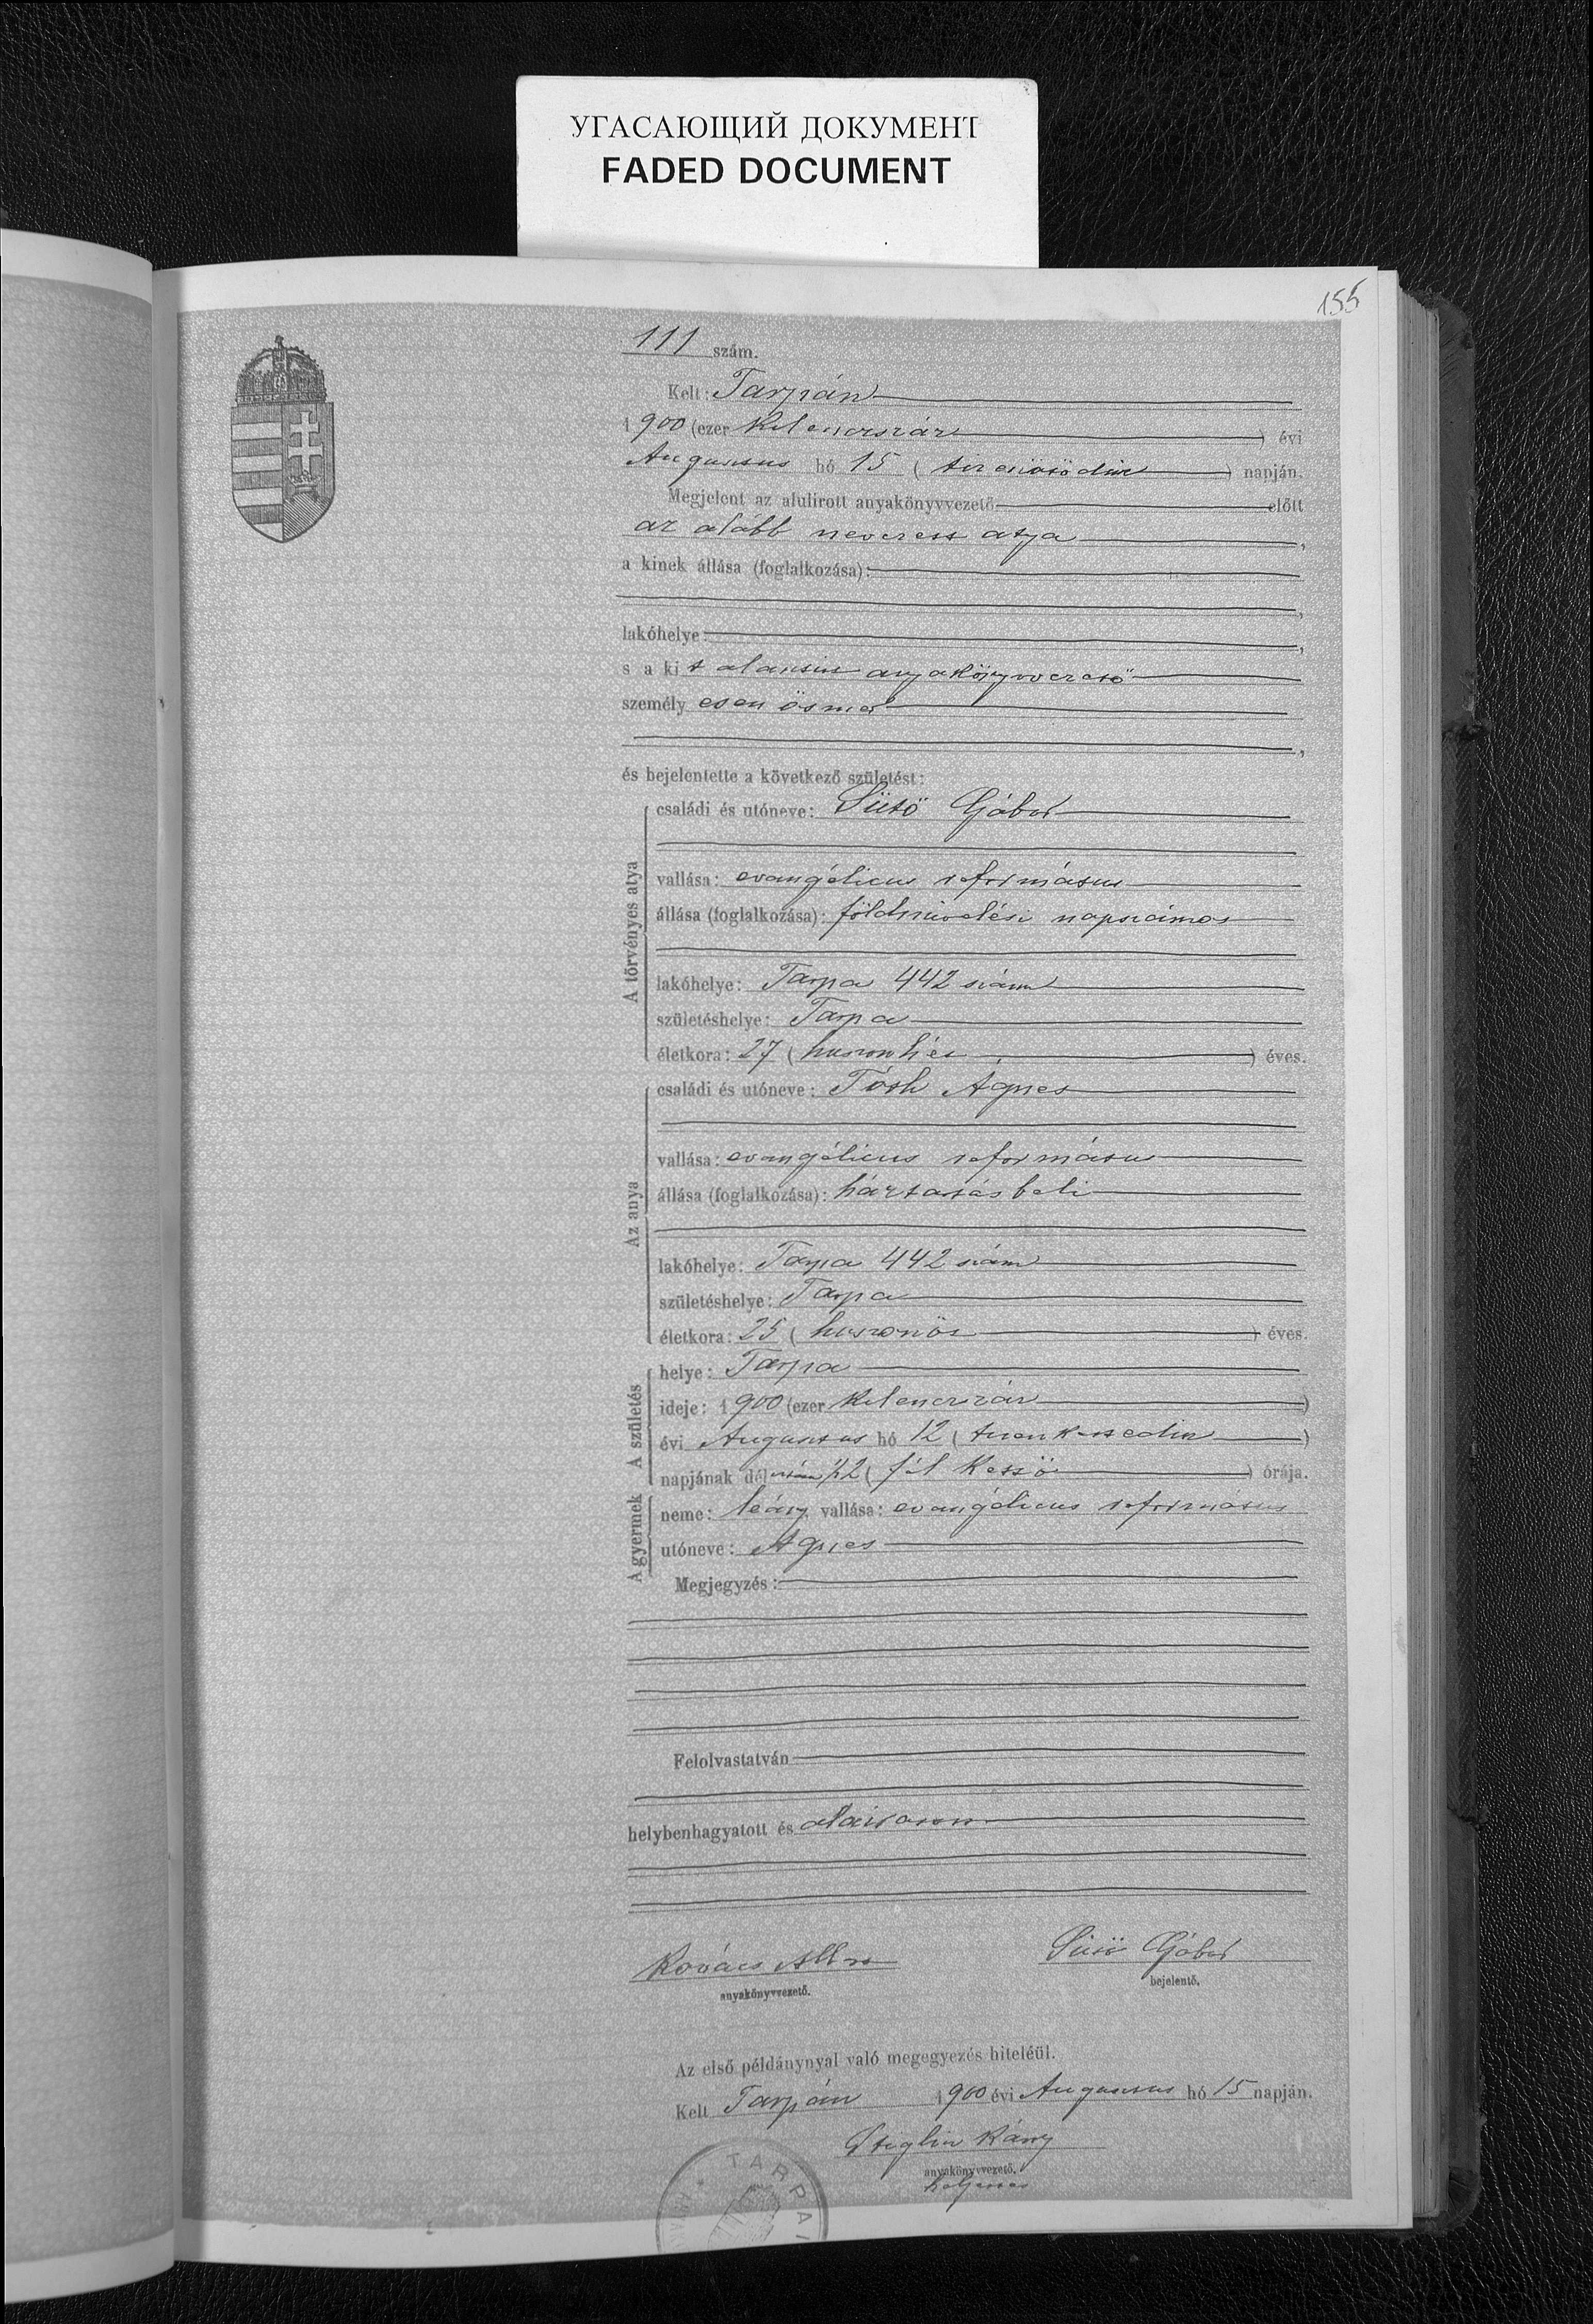 УГАСАЮЩИЙ ДОКУМЕНТ
FADED DOCUMENT
155
111 szám.
Kelt: Tarpán
1900 (ezer kilenczszáz) évi
Augusztus hó 15 (tizenötödik) napján.
Megjelent az alulirott anyakönyvvezető előtt
az alább nevezett atya,
a kinek állása (foglalkozása):
lakóhelye:
s a kit alantirt anyakönyvvezető
személyesen ösmer
és bejelentette a következő születést:
A törvényes atya
családi és utóneve: Sütő Gábor
vallása: evangélicus református
állása (foglalkozása): földmivelési napszámos
lakóhelye: Tarpa 442 szám
születéshelye: Tarpa
életkora: 27 (huszonhét) éves.
Az anya
családi és utóneve: Tóth Ágnes
vallása: evangélicus református
állása (foglalkozása): háztartásbeli
lakóhelye: Tarpa 442 szám
születéshelye: Tarpa
életkora: 25 (huszonöt) éves.
A születés
helye: Tarpa
ideje: 1900 (ezer kilenczszáz)
évi Augusztus hó 12 (tizenkettedik)
napjának délután ½2 (fél kettő) órája.
A gyermek
neme: leány vallása: evangélicus református
utóneve: Ágnes
Megjegyzés:
Felolvastatván
helybenhagyatott és aláiratott
Kovács Sütő Gábor
anyakönyvvezető. bejelentő.
Az első példánynyal való megegyezés hiteléül.
Kelt Tarpán 1900 évi Augusztus hó 15 napján.
anyakönyvvezető.
helyettes
TARPAI